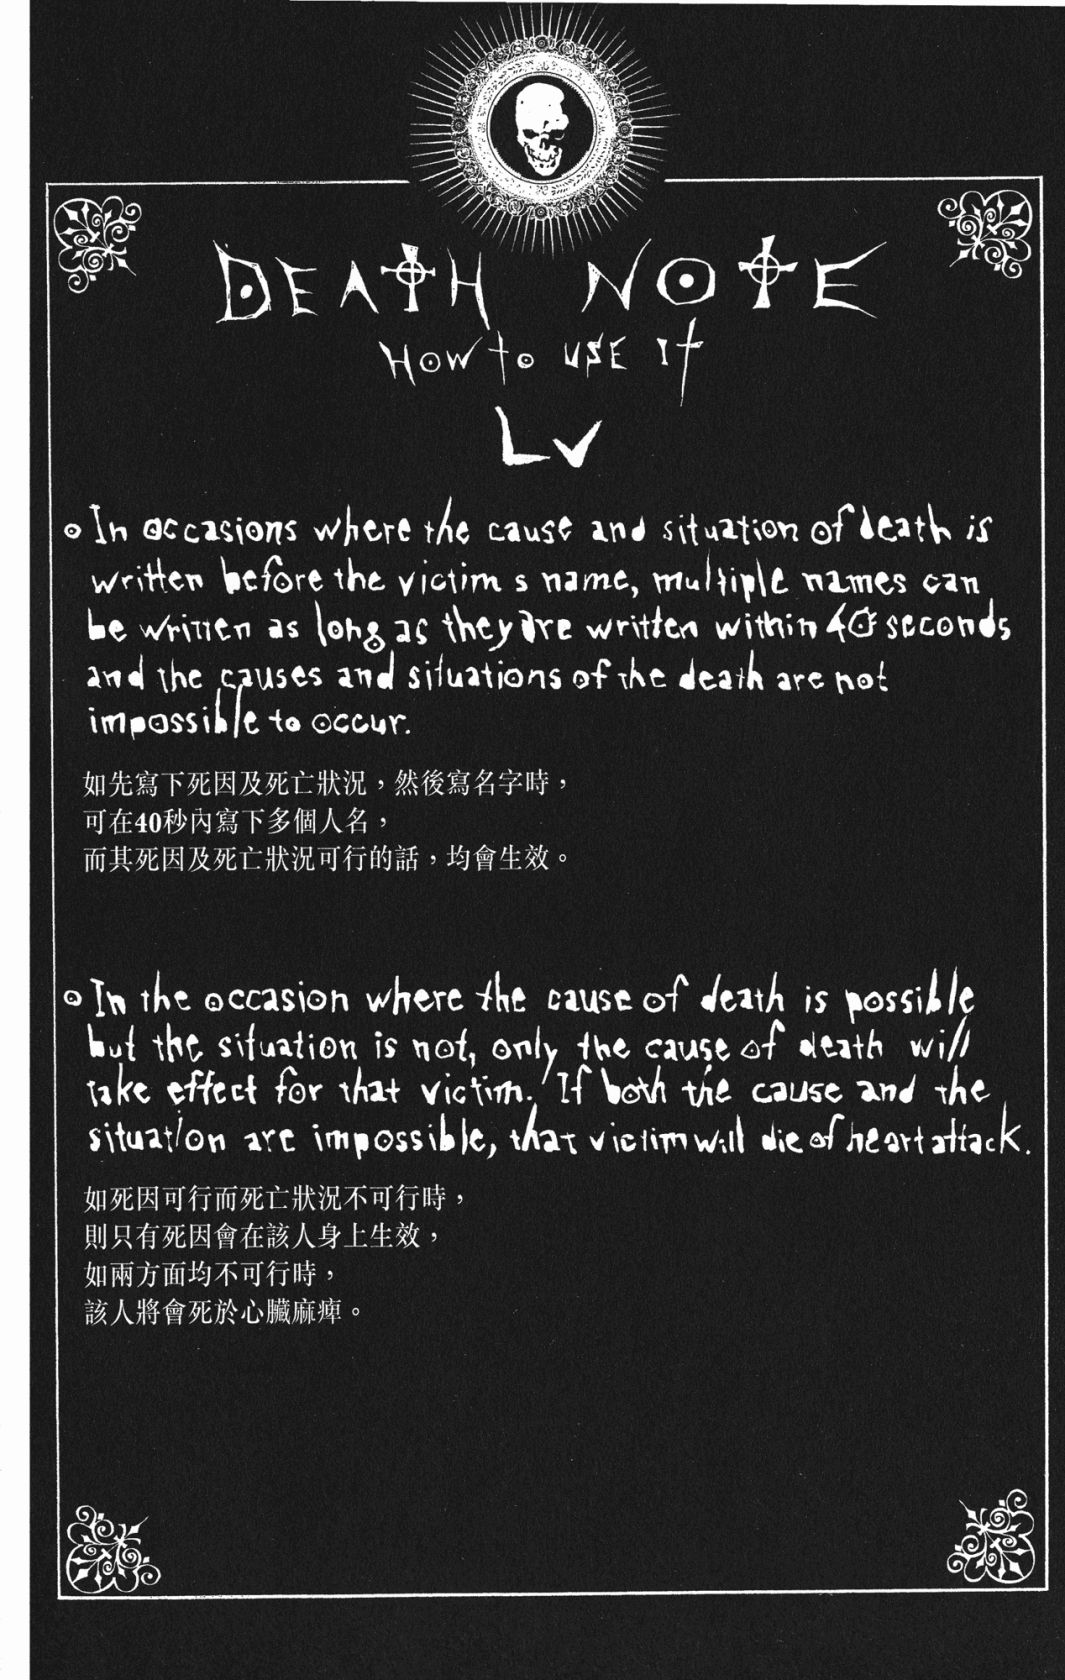 DEATH NOTE
HOW to USE It
LV
In occasions where the cause and situation of death is
written before the victim s name, multiple names can
be written as long as they are written within 40 seconds
and the causes and situations of the death are not
impossible to occur.
如先寫下死因及死亡狀況，然後寫名字時，
可在40秒內寫下多個人名，
而其死因及死亡狀況可行的話，均會生效。
In the occasion where the cause of death is possible
but the situation is not, only the cause of death will
take effect for that victim. If both the cause and the
situation are impossible, that victim will die of heart attack.
如死因可行而死亡狀況不可行時，
則只有死因會在該人身上生效，
如兩方面均不可行時，
該人將會死於心臟麻痺。